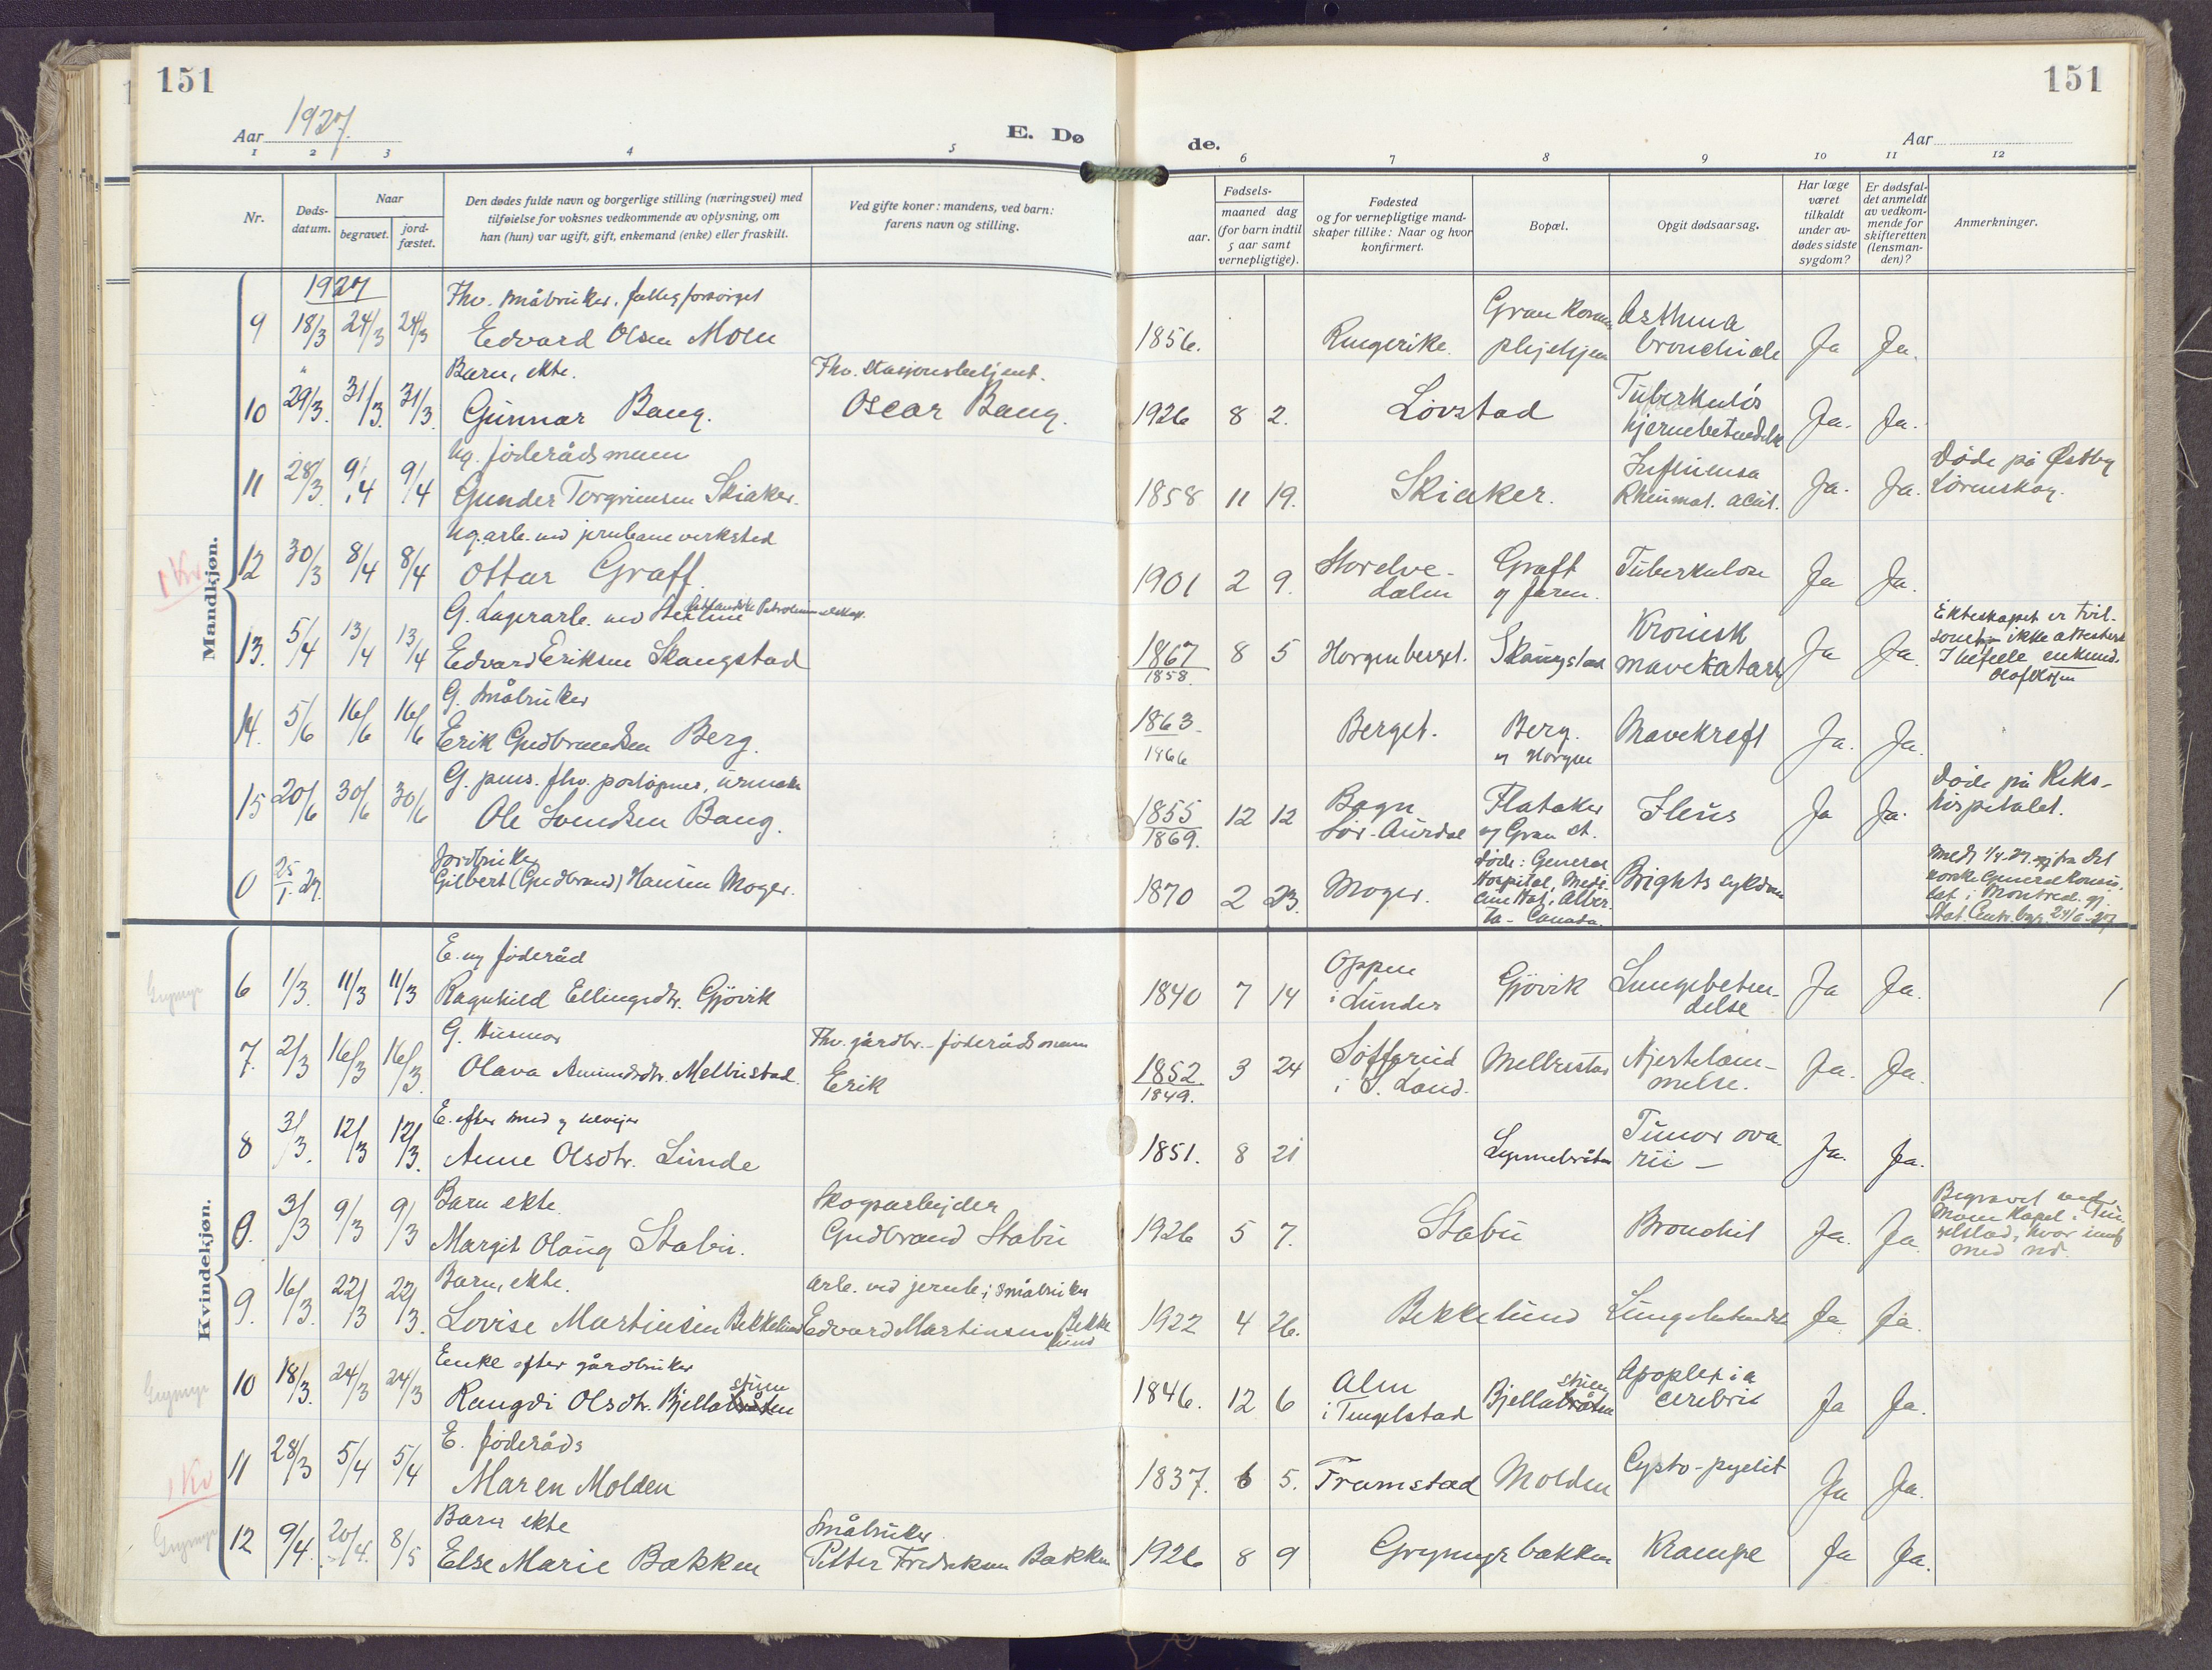 151
151
Aar 1927.
E. Dø
de.
Aar
1 2 3 4 5
6 7 8 9 10 11 12
Nr.
Døds-
datum.
Naar
begravet.
jord-
fæstet.
Den dødes fulde navn og borgerlige stilling (næringsvei) med
tilføielse for voksnes vedkommende av oplysning, om
han (hun) var ugift, gift, enkemand (enke) eller fraskilt.
Ved gifte koner: mandens, ved barn:
farens navn og stilling.
Fødsels-
aar.
maaned dag
(for barn indtil
5 aar samt
vernepligtige).
Fødested
og for vernepligtige mand-
skaper tillike: Naar og hvor
konfirmert.
Bopæl.
Opgit dødsaarsag.
Har læge
været
tilkaldt
under av-
dødes sidste
sygdom?
Er dødsfal-
det anmeldt
av vedkom-
mende for
skifteretten
(lensman-
den)?
Anmerkninger.
Mandkjøn.
1927
Fhv. småbruker, fattigforsørget
9 18/3 24/3 24/3 Edvard Olsen Moen 1856. Ringerike. Asthma
bronchiale Ja Ja.
Barn, ekte. Fhv. stasjonsbetjent.
10 29/3. 31/3. 31/3. Gunnar Bang. Oscar Bang. 1926 8 2. Lovstad Tuberkuløs
hjernebetendelse Ja. Ja.
Ug. føderådsmann
11 28/3. 9/4 9/4 Gunder Torgrimsen Skiaker. 1858 11 19. Skiaker. Influensa
Rheumat. acut. Ja. Ja. Døde på Østby
Lørenskog.
Ug. arb. ved jernbaneverksted
1 Kv
12 30/3 8/4 8/4 Ottar Graff. 1901 2 9. Storelve-
dalen Graff
Tuberkulose Ja Ja.
G. Lagerarb. ved
13. 5/4 13/4 13/4 Edvard Eriksen Skangstad 1867
1858. 8 5 Horgenberget. Skangstad Kronisk
mavekatarh Ja Ja. Ekteskapet er tvil-
somt ikke attestert
G. Småbruker
14. 5/6 16/6 16/6 Erik Gudbrandsen Berg. 1863.
1866 Berget. Berg.
og Horgen Mavekreft Ja. Ja.
G. pens. fhv. poståpner, urmaker
15 20/6 30/6 30/6 Ole Svendsen Bang. 1855
1869. 12 12 Bagn
Sør-Aurdal Flataker
og Gran st. Ileus Ja Ja. Døde på Riks-
hospitalet.
Jordbruker
0 25/1. 27. Gilbert (Gudbrand) Hansen Moger. 1870 2 23. Moger. Døde: General
Hospital, Medi-
cine Hat, Alber-
ta - Canada. Brights sykdom Medt 1/4-27 fra det
norske Generalkonsu-
lat i Montreal
Stat. Centr. byr. 24/6-27.
Kvindekjøn.
E. ny føderåd
6 1/3. 11/3 11/3 Ragnhild Ellingsdtr. Gjøvik 1840 7 14 Oppen
i Lunder Gjøvik Lungebeten-
delse Ja Ja.
G. Husmor Fhv. gårdbr. - føderådsmann
7. 2/3 16/3 16/3. Olava Amundsdtr. Melbustad. Erik 1852.
1849. 3 24 Søffgrind
i S. Land. Mellbustad Hjertelam-
melse. Ja. Ja.
E. efter smed
8 3/3. 12/3 12/3. Anne Olsdtr. Lunde 1851. 8 21 Tumor ova-
rii - Ja. Ja.
Barn ekte. Skogsarbejder
0. 3/3 9/3 9/3 Margit Olaug Stabu. Gudbrand Stabu 1926 5 7. Stabu Bronchit Ja. Ja. Begravet ved
Moen Kapel i Tin-
gelstad, hvor innf
med nr.
Barn, ekte. Arb. ved jernb. i småbruker
9. 16/3. 22/3 22/3. Lovise Martinsen Bekkelund Edvard Martinsen Bekke
lund 1922 4 26. Bekkelund Lungebetendelse Ja Ja.
Enke efter gårdbruker
10 18/3. 24/3 24/3 Rangdi Olsdtr. Bjellabråten
stuen 1846. 12 6 Alm
i Tingelstad Bjellabråten
stuen Apoplexia
cerebri Ja Ja.
E. føderåds
1 Kv
11 28/3 5/4 5/4 Maren Molden 1837. 6 5. Framstad Molden Cysto-pyelit Ja Ja.
Barn ekte Småbruker.
12 9/4. 20/4. 8/5 Else Marie Bakken Petter Fredriksen Bakken 1926 8 9 Grymyrbakken Krampe Ja Ja.